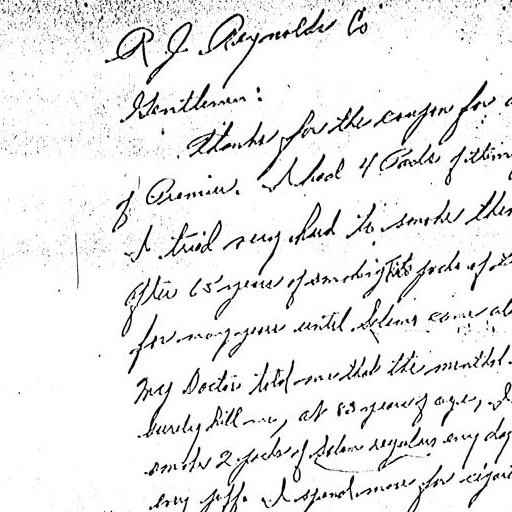 R J Reynolds Co
Gentlemen:
Thanks for the coupon for a
of Premier. I had 4 Packs of them
I tried very hard to smoke them
after 65 years of smoking packs of
for many years until Salems came
My Doctor told me that the menthol
surely kill me, at 83 years of age, I
smoke 2 packs of Salem regulars every day
I spend more for